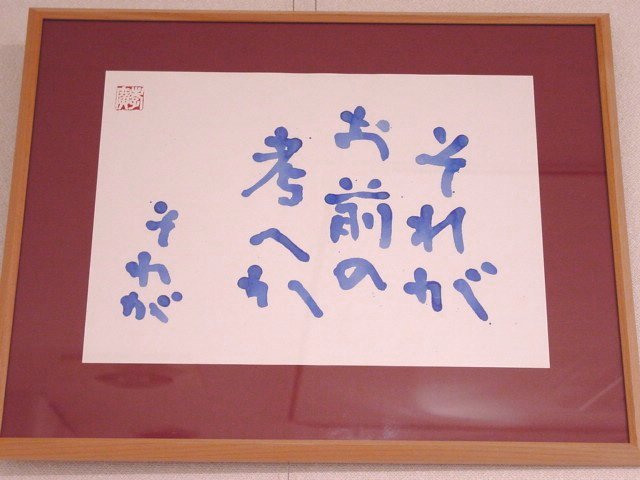 それが
お前の
考へか
そわが